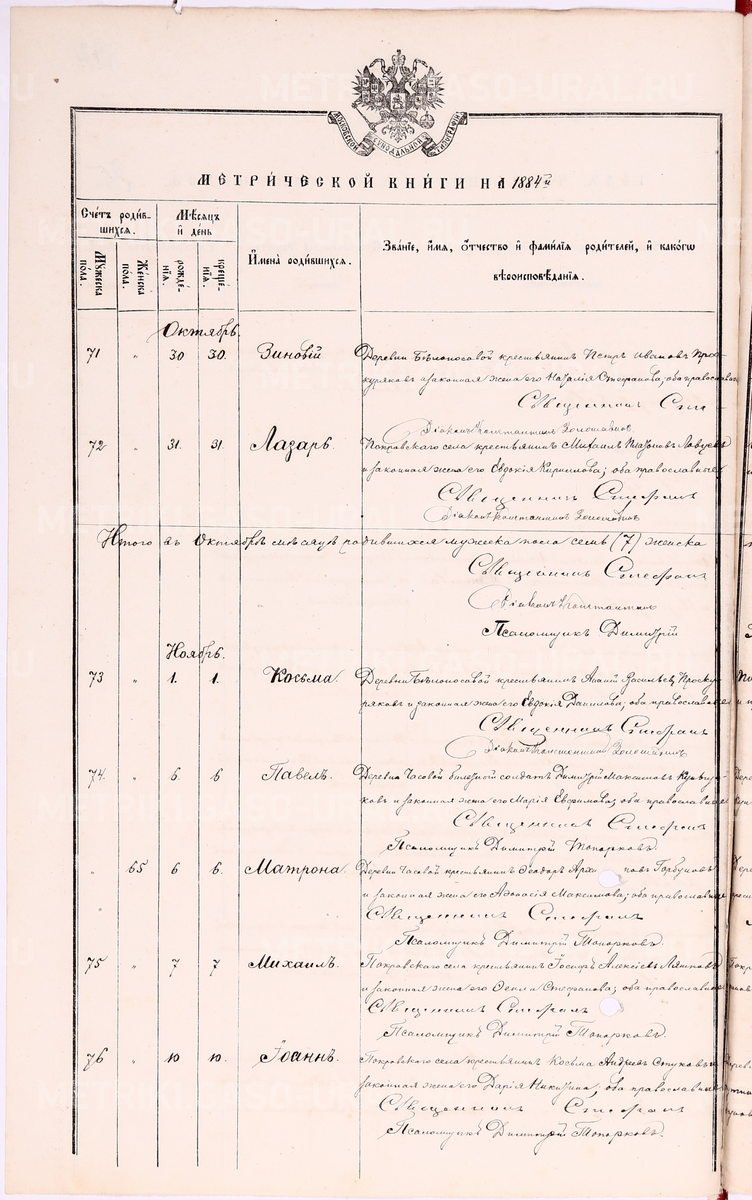 МОСКОВСКОЙ СѴНОДАЛЬНОЙ ТИПОГРАФІИ
МЕТРИ́ЧЕСКОЙ КНИ́ГИ НА 1884 й
Сче́тъ роди́в-
шихся.
Мѣ́сяцъ
и де́нь
Му́жеска
по́ла.
Же́нска
по́ла.
рожде́-
нія.
креще́-
нія.
Имена̀ роди́вшихся.
Зва́ніе, и́мя, о́тчество и фами́лія роди́телей, и како́гѡ
вѣроисповѣ́данія.
Октябрь.
71 " 30 30. Зиновій Деревни Бѣлоносовой крестьянинъ Петръ Ивановъ Прос-
куряковъ и законная жена его Наталія Стефанова; оба православ
Священникъ Сте-
Діаконъ Константинъ
72 " 31. 31 Лазарь. Покровскаго села крестьянинъ Михаилъ
и законная жена его Евдокія Кириллова; оба православные
Священникъ Стефанъ
Діаконъ Константинъ
Итого въ Октябрѣ мѣсяцѣ родившихся мужска пола семь (7) женска
Священникъ Стефанъ
Діаконъ Константинъ
Псаломщикъ Димитрій
Ноябрь.
73 " 1. 1. Косьма. Деревни Бѣлоносовой крестьянинъ Васильевъ Проску-
ряковъ и законная жена его Евдокія Данилова; оба православные
Священникъ Стефанъ
Діаконъ Константинъ
74. " 6 6 Павелъ. Деревни Часовой билетный солдатъ Димитрій Максимовъ
ковъ и законная жена его Марія Евфимова; оба православные
Священникъ Стефанъ
Псаломщикъ Димитрій Топорковъ.
" 65 6 6. Матрона. Деревни Часовой крестьянинъ Ѳеодоръ Архиповъ Горбуновъ
и законная жена его Аѳанасія Максимова; оба православные
Священникъ Стефанъ
Псаломщикъ Димитрій Топорковъ.
75 " 7 7 Михаилъ. Покровскаго села крестьянинъ Іосифъ Алексіевъ
и законная жена его Ѳекла Стефанова; оба православные
Священникъ Стефанъ
Псаломщикъ Димитрій Топорковъ.
76 " 10 10. Іоаннъ. Покровскаго села крестьянинъ Косьма Андреевъ
законная жена его Дарія Никитина; оба православные
Священникъ Стефанъ
Псаломщикъ Димитрій Топорковъ.